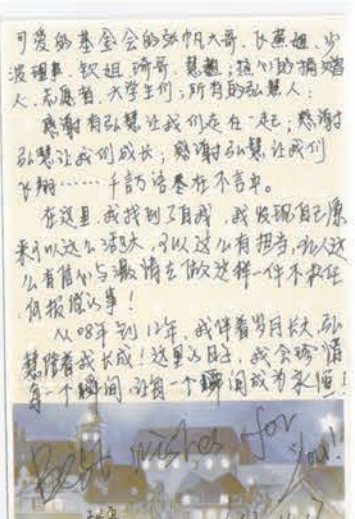 可爱的基金会的张帆大哥、长燕姐、少
波理事、钦姐、琦哥、慧姐;热心的捐赠
人、志愿者、大学生们,所有的弘慧人:
感谢有弘慧让我们走在一起;感谢
弘慧让我们成长;感谢弘慧让我们
飞翔……千言万语尽在不言中。
在这里,我找到了自我,我发现自己原
来可以这么强大,可以这么有担当,可以这
么有信心与激情去做这样一件不求任
何报偿的事!
从08年到12年,我伴着岁月长大,弘
慧陪着我长成!这里的日子,我会珍惜
每一个瞬间,让每一个瞬间成为永恒!
Best wishes for
You!